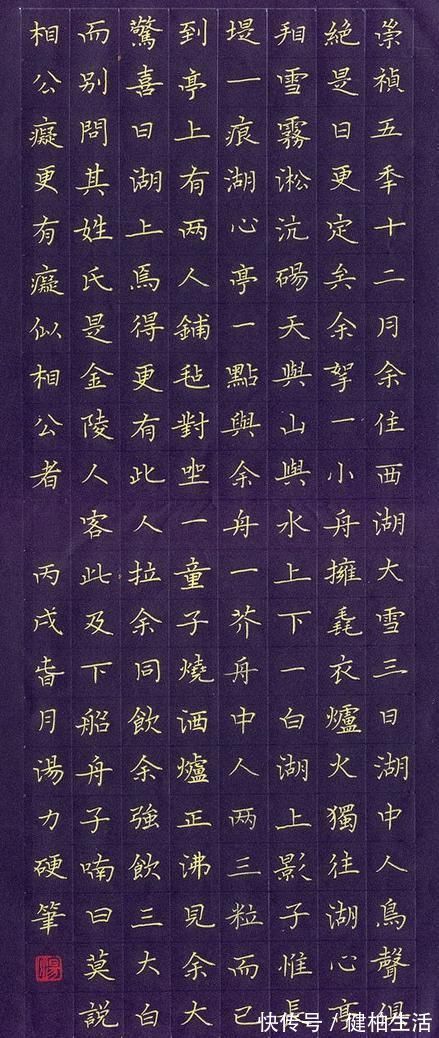 崇禎五季十二月余住西湖大雪三日湖中人鳥聲俱
絕是日更定矣余拏一小舟擁毳衣爐火獨往湖心亭
看雪霧淞沆碭天與山與水上下一白湖上影子惟長
堤一痕湖心亭一點與余舟一芥舟中人两三粒而已
到亭上有两人鋪毡對坐一童子燒酒爐正沸見余大
驚喜曰湖上焉得更有此人拉余同飲余強飲三大白
而別問其姓氏是金陵人客此及下船舟子喃曰莫説
相公癡更有癡似相公者 丙戌春月湯力硬筆
湯
快传号/健柏生活